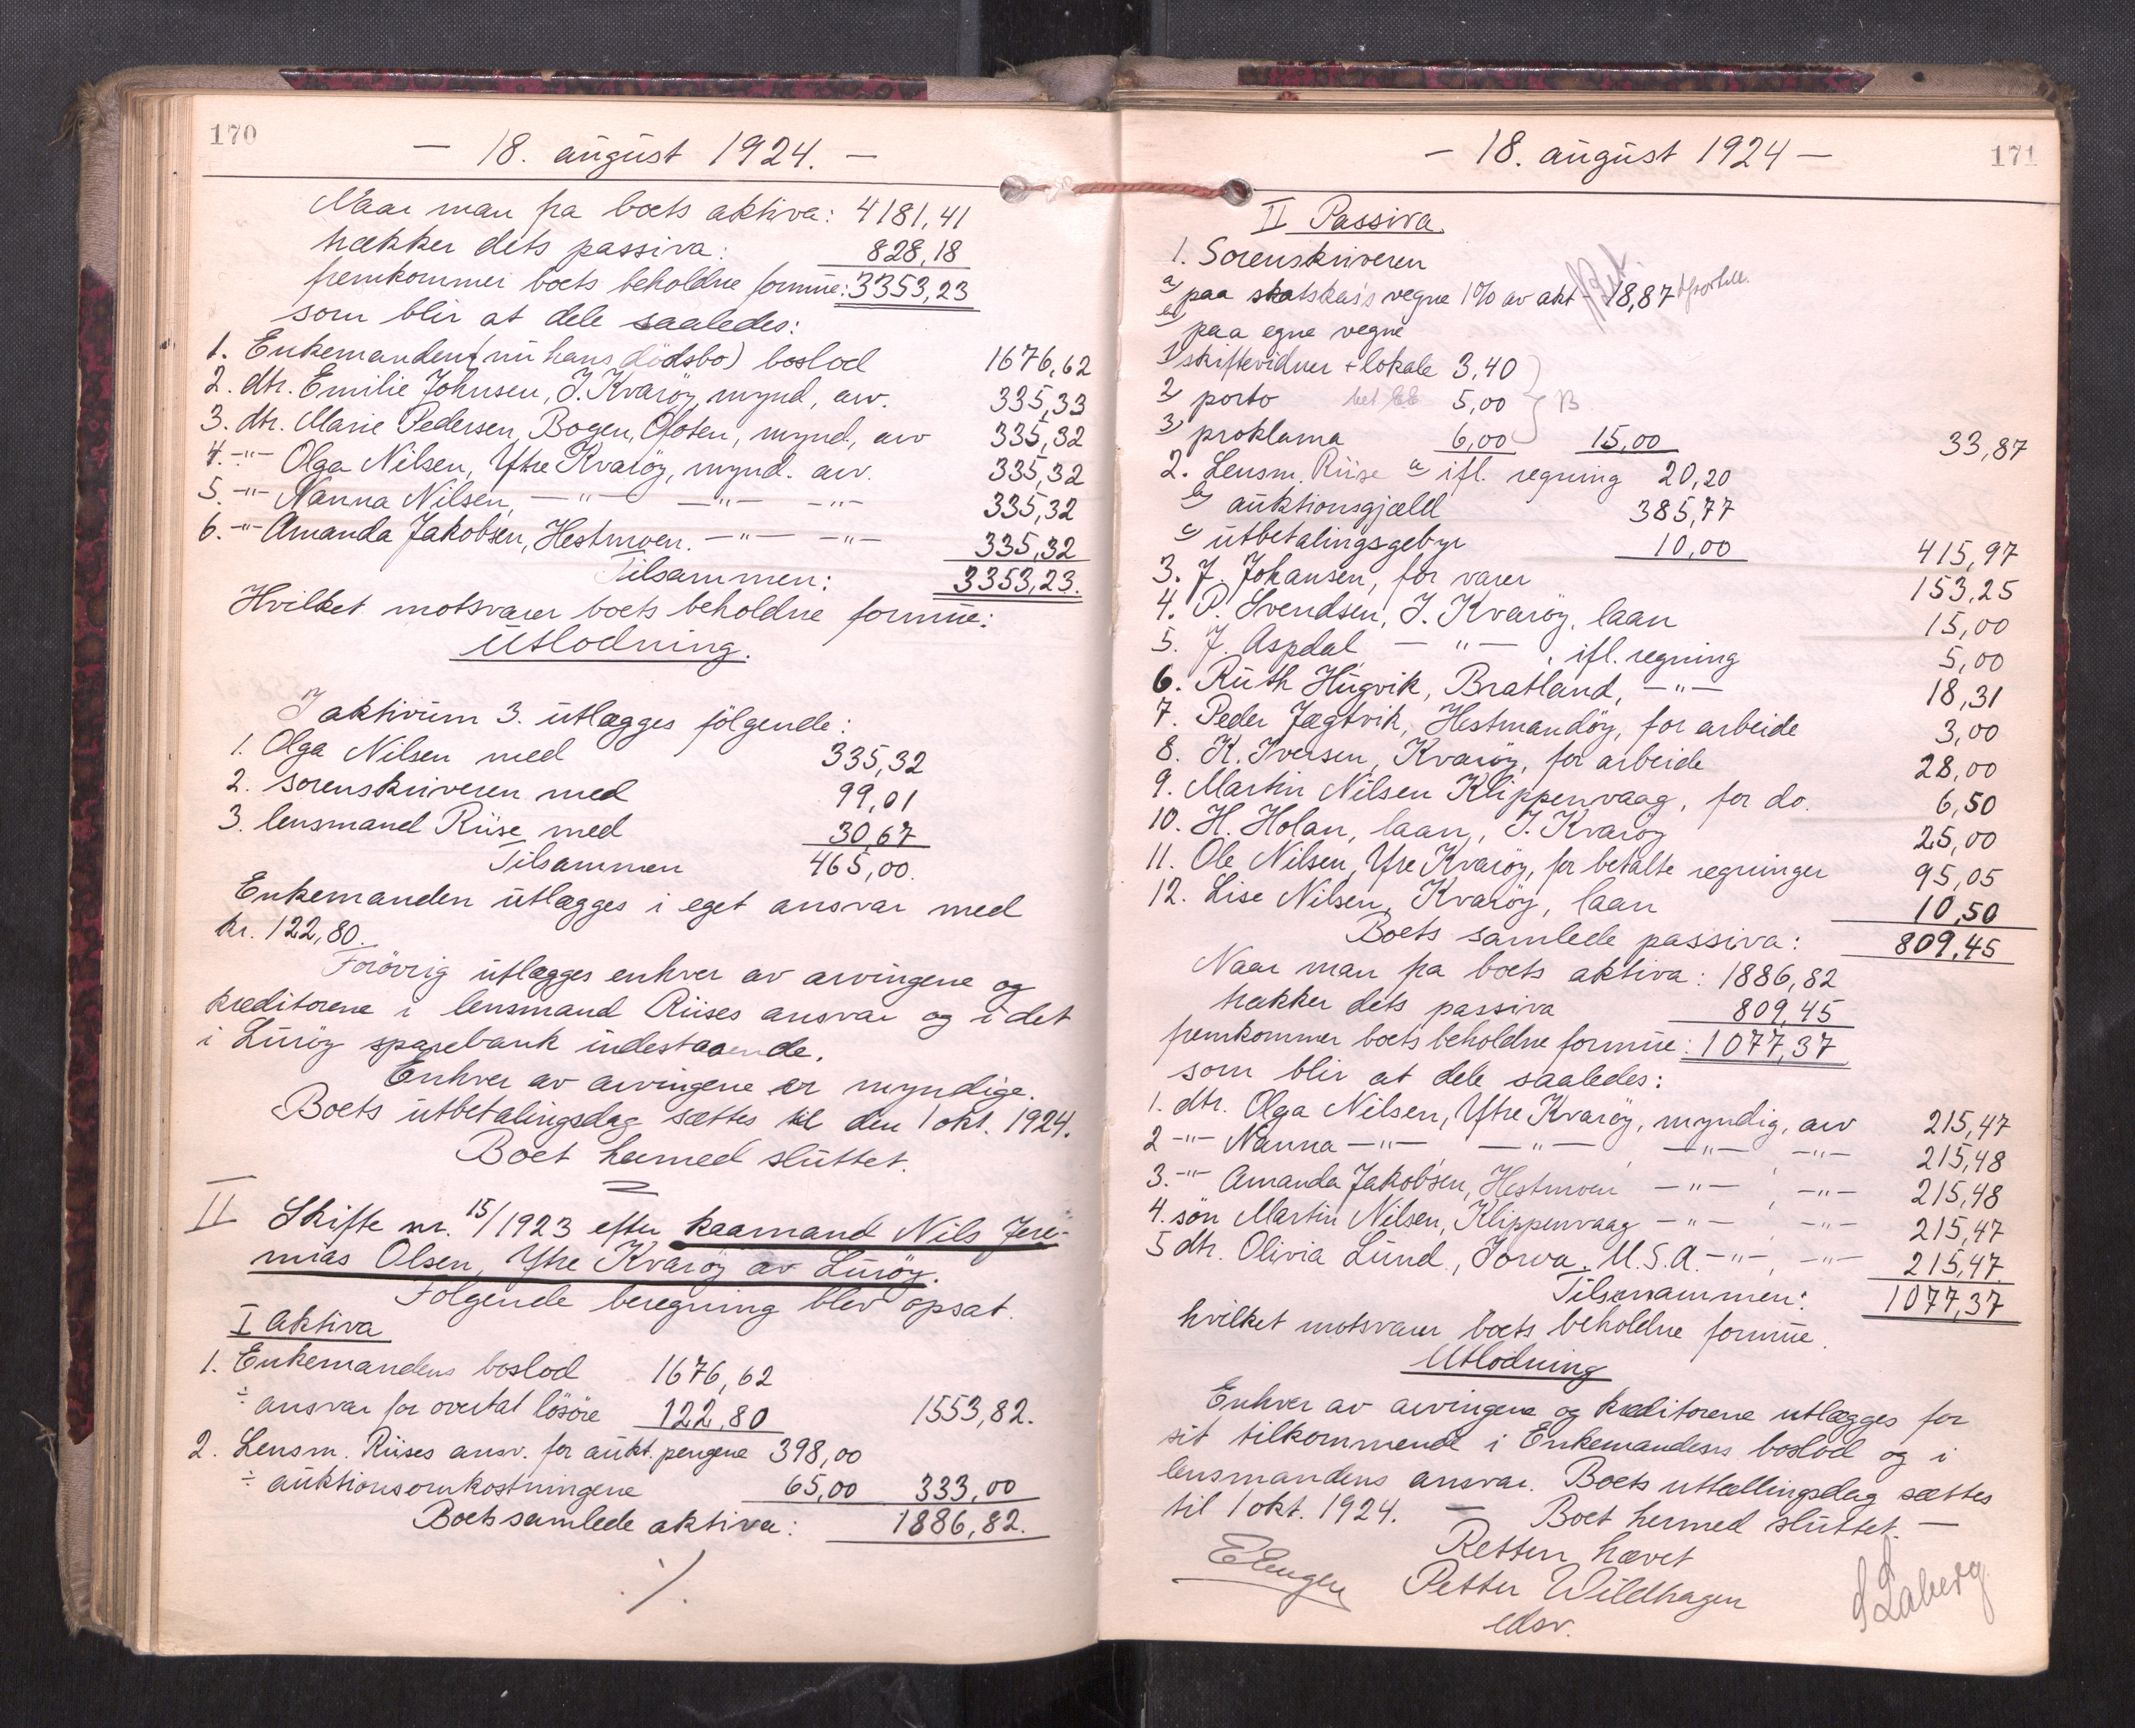 170
— 18. august 1924. —
Naar man fra boets aktiva: 4181,41
trækker dets passiva: 828,18
fremkommer boets beholdne formue: 3353,23
som blir at dele saaledes:
1. Enkemanden (nu hans dödsbo) boslod 1676,62
2. dtr. Emilie Johnsen, I. Kvaröy, mynd, arv. 335,33
3. dtr. Marie Pedersen, Bogen, Ofoten, mynd, arv 335,32
4. -"- Olga Nilsen, Ytre Kvaröy, mynd. arv. 335,32
5. -"- Nanna Nilsen, -"- -"- -"- 335,32
6. -"- Amanda Jakobsen, Hestmoen. -"- -"- 335,32
Tilsammen: 3353,23.
Hvilket motsvarer boets beholdne formue:
Utlodning.
I aktivum 3. utlægges fölgende:
1. Olga Nilsen med 335,32
2. sorenskriveren med 99,01
3. lensmand Riise med 30,67
Tilsammen 465,00.
Enkemanden utlægges i eget ansvar med
kr. 122,80.
Forövrig utlægges enhver av arvingene og
kreditorene i lensmand Riises ansvar og i det
i Luröy sparebank indestaaende.
Enhver av arvingene er myndige.
Boets utbetalingsdag sættes til den 1 okt. 1924.
Boet hermed sluttet.
II Skifte nr. 15/1923 efter kaarmand Nils Jere-
mias Olsen, Ytre Kvaröy av Luröy.
Fölgende beregning blev opsat.
I Aktiva
1. Enkemandens boslod 1676,62
÷ ansvar for overtat lösöre 122,80 1553,82.
2. Lensm. Riises ansv. for aukt. pengene 398,00
÷ auktionsomkostningene 65,00 333,00
Boets samlede aktiva: 1886,82.
./.
171
— 18. august 1924 —
II Passiva.
1. Sorenskriveren
a) paa statskas's vegne 1% av akt - 18,87
b) paa egne vegne
1) skiftevidner + lokale 3,40
2) porto 5,00 B
3) proklama 6,00 15,00 33,87
2. Lensm. Riise a) ifl. regning 20,20
b) auktionsgjæld 385,77
c) utbetalingsgebyr 10,00 415,97
3. J. Johansen, for varer 153,25
4. P. Svendsen, I. Kvaröy, laan 15,00
5. J. Aspdal -"-, ifl. regning 5,00
6. Ruth Hugvik, Bratland, -"- 18,31
7. Peder Jægtvik, Hestmandöy, for arbeide 3,00
8. K. Iversen, Kvaröy, for arbeide 28,00
9. Martin Nilsen Klippenvaag, for do. 6,50
10. H. Holan, laan, I. Kvaröy 25,00
11. Ole Nilsen, Ytre Kvaröy, for betalte regninger 95,05
12. Lise Nilsen, Kvaröy, laan 10,50
Boets samlede passiva: 809,45
Naar man fra boets aktiva: 1886,82
trækker dets passiva 809,45
fremkommer boets beholdne formue: 1077,37
som blir at dele saaledes:
1. dtr. Olga Nilsen, Ytre Kvaröy, myndig, arv 215,47
2 -"- Nanna -"-, -"-, -"- -"- 215,48
3. -"- Amanda Jakobsen, Hestmoen -"-, -"- 215,48
4. sön Martin Nilsen, Klippenvaag -"-, -"- 215,47
5 dtr. Olivia Lund, Iowa. U.S.A. -"-, -"- 215,47.
Tilsammen: 1077,37
hvilket motsvarer boets beholdne formue.
Utlodning
Enhver av arvingene og kreditorene utlægges for
sit tilkommende i Enkemandens boslod og i
lensmandens ansvar. Boets utbetalingsdag sættes
til 1 okt. 1924. — Boet hermed sluttet. —
Retten hævet
Petter Wildhagen
edsv.